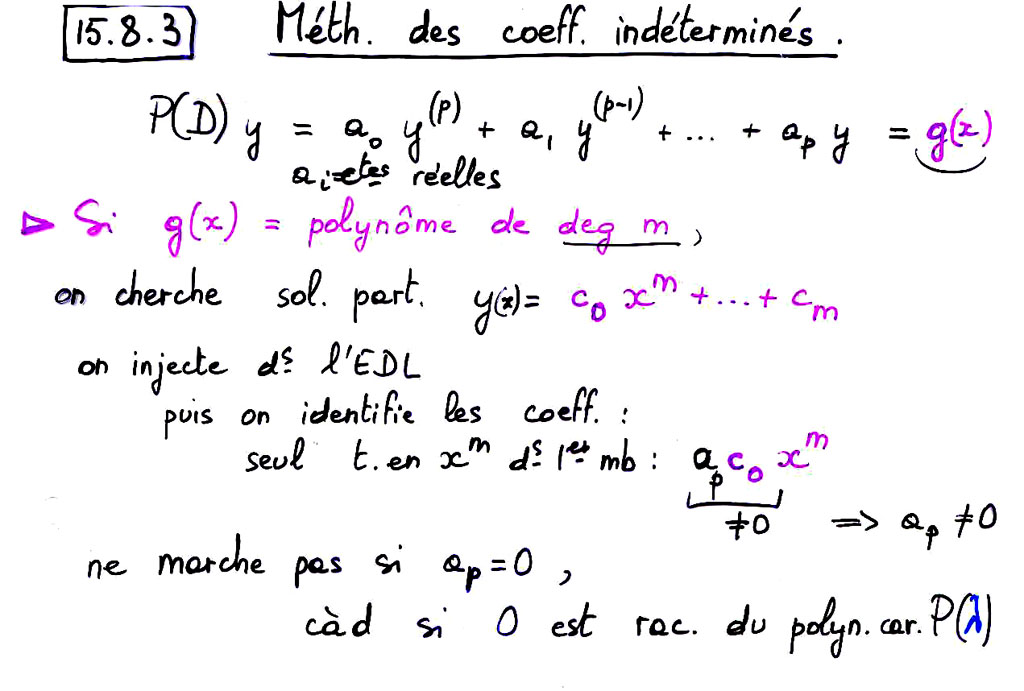 15.8.3 Méth. des coeff. indéterminés.
P(D) y = a₀ y⁽ᵖ⁾ + a₁ y⁽ᵖ⁻¹⁾ + ... + aₚ y = g(x)
aᵢ = ctes réelles
▷ Si g(x) = polynôme de deg m,
on cherche sol. part. y(x) = c₀ xᵐ + ... + cₘ
on injecte ds l'EDL
puis on identifie les coeff. :
seul t. en xᵐ ds 1er mb : aₚ c₀ xᵐ
≠0 => aₚ ≠ 0
ne marche pas si aₚ = 0 ,
càd si 0 est rac. du polyn. car. P(λ)